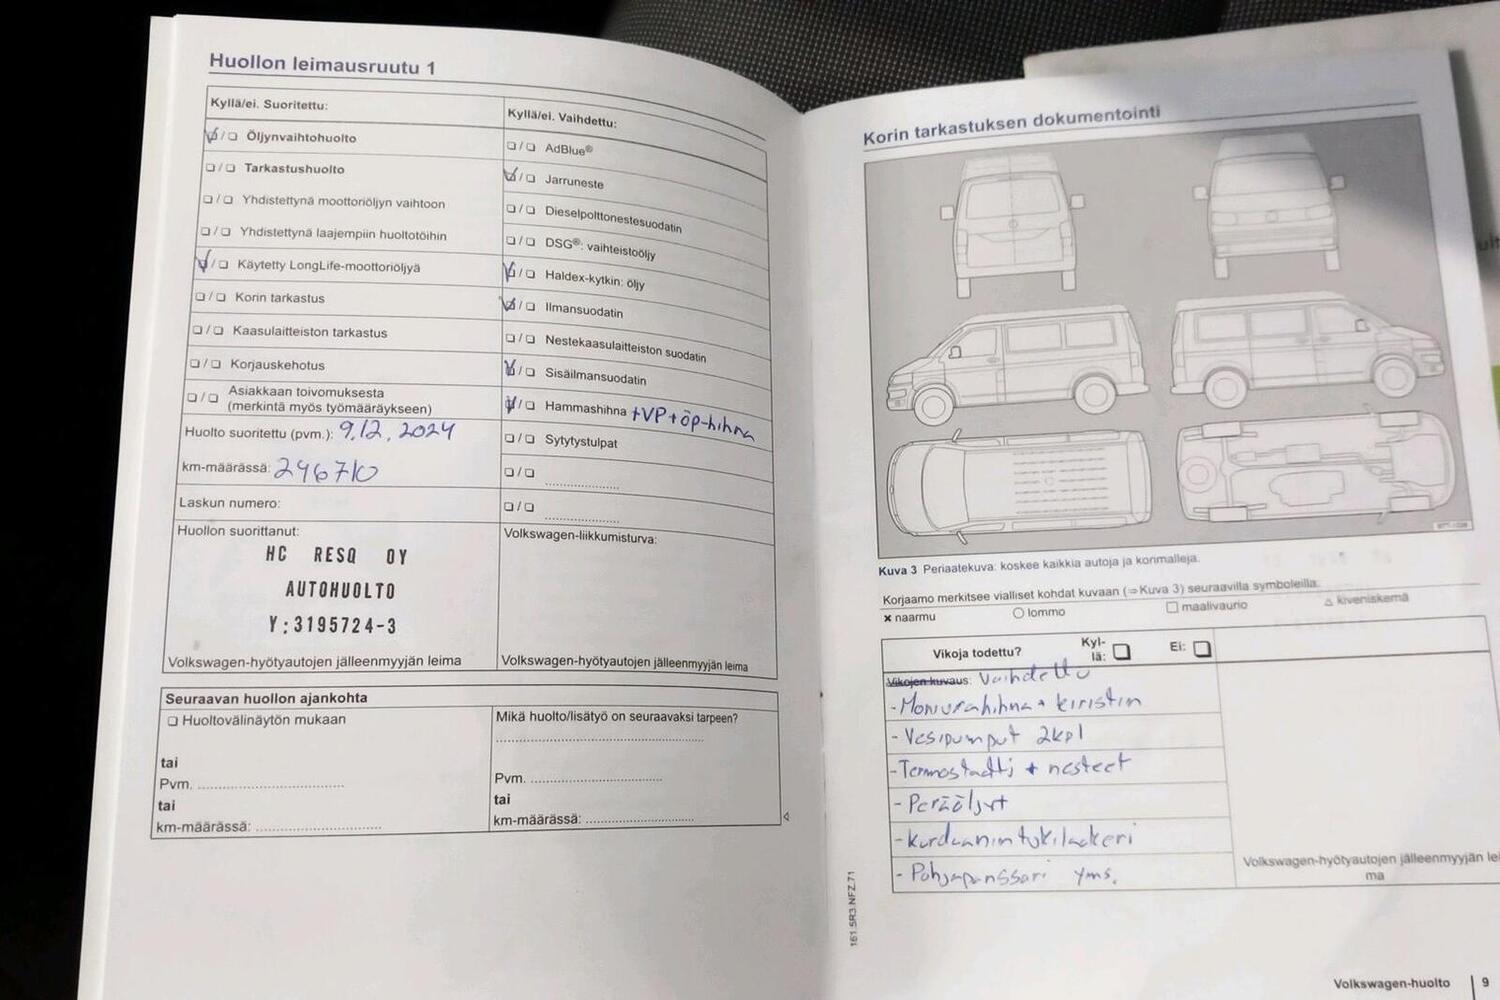 Huollon leimausruutu 1
Kyllä/ei. Suoritettu:
Öljynvaihtohuolto
Tarkastushuolto
Yhdistettynä moottoriöljyn vaihtoon
Yhdistettynä laajempiin huoltotöihin
Käytetty LongLife-moottoriöljyä
Korin tarkastus
Kaasulaitteiston tarkastus
Korjauskehotus
Asiakkaan toivomuksesta
(merkintä myös työmääräykseen)
Huolto suoritettu (pvm.): 9.12.2024
km-määrässä: 246710
Laskun numero:
Huollon suorittanut:
HC RESQ OY
AUTOHUOLTO
Y:3195724-3
Volkswagen-hyötyautojen jälleenmyyjän leima
Kyllä/ei. Vaihdettu:
AdBlue®
Jarruneste
Dieselpolttonestesuodatin
DSG®: vaihteistoöljy
Haldex-kytkin: öljy
Ilmansuodatin
Nestekaasulaitteiston suodatin
Sisäilmansuodatin
Hammashihna +VP+öp-hihna
Sytytystulpat
Volkswagen-liikkumisturva:
Volkswagen-hyötyautojen jälleenmyyjän leima
Seuraavan huollon ajankohta
Huoltovälinäytön mukaan
tai
Pvm.
tai
km-määrässä:
Mikä huolto/lisätyö on seuraavaksi tarpeen?
Pvm.
tai
km-määrässä:
161.5R3.NFZ.71
Korin tarkastuksen dokumentointi
Kuva 3 Periaatekuva: koskee kaikkia autoja ja korimalleja.
Korjaamo merkitsee vialliset kohdat kuvaan (⇒Kuva 3) seuraavilla symboleilla:
× naarmu
○ lommo
□ maalivaurio
△ kiveniskemä
Vikoja todettu? Kyl-
lä:
Ei:
Vikojen kuvaus: Vaihdettu
- Moniurahihna + kiristin
- Vesipumput 2kpl
- Termostaatti + nesteet
- Peräöljyt
- kardaanin tukilaakeri
- Pohjapanssari yms.
Volkswagen-hyötyautojen jälleenmyyjän lei
ma
Volkswagen-huolto 9